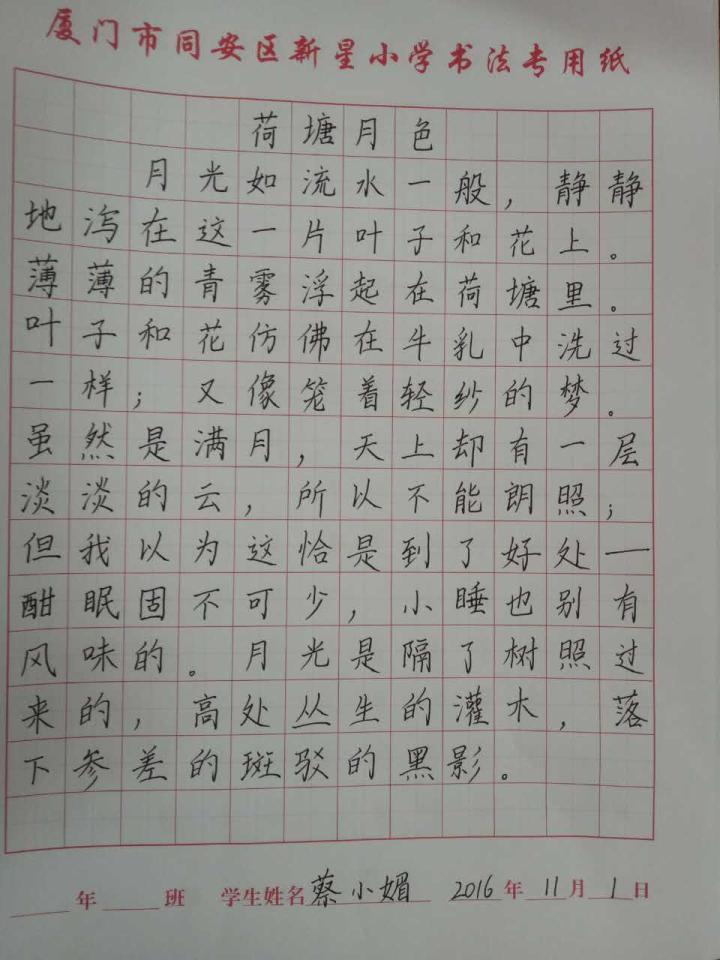 厦门市同安区新星小学书法专用纸
荷塘月色
月光如流水一般，静静
地泻在这一片叶子和花上。
薄薄的青雾浮起在荷塘里。
叶子和花仿佛在牛乳中洗过
一样；又像笼着轻纱的梦。
虽然是满月，天上却有一层
淡淡的云，所以不能朗照；
但我以为这恰是到了好处—
酣眠固不可少，小睡也别有
风味的。月光是隔了树照过
来的，高处丛生的灌木，落
下参差的斑驳的黑影。
年 班 学生姓名 蔡小媚 2016年11月1日